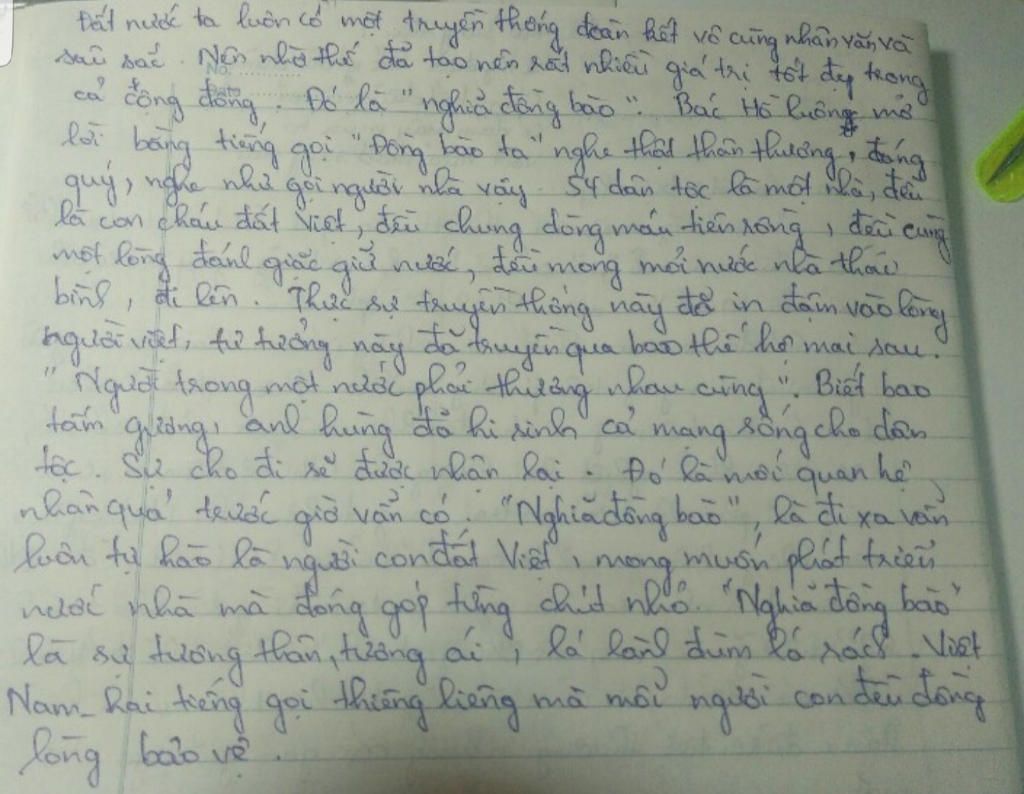 Đất nước ta luôn có một truyền thống đoàn kết vô cùng nhân văn và
sâu sắc. Nên nhờ thế đã tạo nên rất nhiều giá trị tốt đẹp trong
cả cộng đồng. Đó là "nghĩa đồng bào". Bác Hồ luông mở
lời bằng tiếng gọi "Đồng bào ta" nghe thật thân thương, đáng
quý, nghe như gọi người nhà vậy. 54 dân tộc là một nhà, đều
là con cháu đất Việt, đều chung dòng máu tiên rồng, đều cùng
một lòng đánh giặc giữ nước, đều mong mỏi nước nhà thái
bình, đi lên. Thực sự truyền thống này đã in đậm vào lòng
người việt, tư tưởng này đã truyền qua bao thế hệ mai sau.
"Người trong một nước phải thương nhau cùng". Biết bao
tấm gương, anh hùng đã hi sinh cả mạng sống cho dân
tộc. Sự cho đi sẽ được nhân lại. Đó là mối quan hệ
nhân quả trước giờ vẫn có. "Nghĩa đồng bào", là đi xa vẫn
luôn tự hào là người con đất Việt, mong muốn phát triển
nước nhà mà đóng góp từng chút nhỏ. "Nghĩa đồng bào"
là sự tương thân, tương ái, lá lành đùm lá rách. Việt
Nam_ hai tiếng gọi thiêng liêng mà mỗi người con đều đồng
lòng bảo vệ.